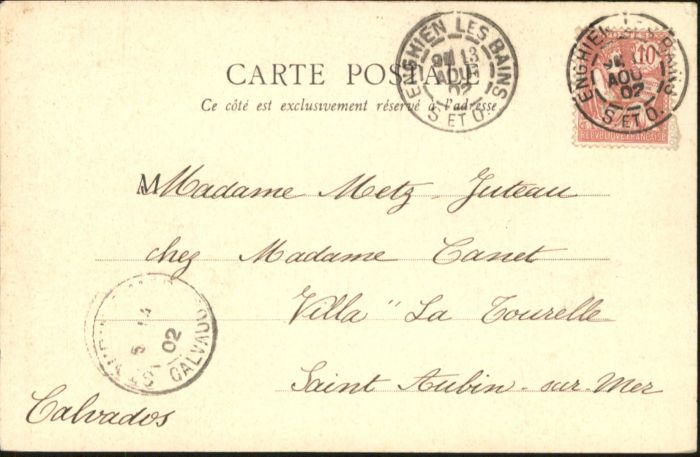 CARTE POSTALE
Ce côté est exclusivement réservé à l'adresse
ENGHIEN LES BAINS
13
AOU
02
S. ET O.
10
ENGHIEN LES BAINS
AOU
02
S. ET O.
REPUBLIQUE FRANÇAISE
M Madame Metz Juteau
chez Madame Canet
Villa " La Tourelle
Saint Aubin-sur-Mer
Calvados
02
CALVADOS